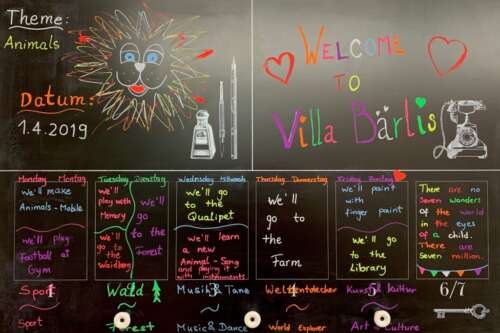 Theme:
Animals
Datum:
1.4.2019
WELCOME
TO
Villa Bärlis
Monday Montag
we'll make
Animals-Mobile
we'll play
Football at
Gym
Tuesday Dienstag
we'll
play with
Memory
we'll
go
to the
Waidberg
we'll
go to
the
Forest
Wednesday Mittwoch
we'll go
to the
Qualipet
we'll learn
a new
Animal-Song
and playing it
with instruments
Thursday Donnerstag
we'll
go
to
the
Farm
Friday Freitag
we'll paint
with
finger paint
we'll go
to the
Library
There are no
Seven wonders
of the world
in the eyes
of a child.
There are
Seven million.
Sport 1
Sport
Wald 2
Forest
Musik & Tanz 3
Music & Dance
Weltentdecker 4
World Explorer
Kunst & Kultur 5
Art & Culture
6/7